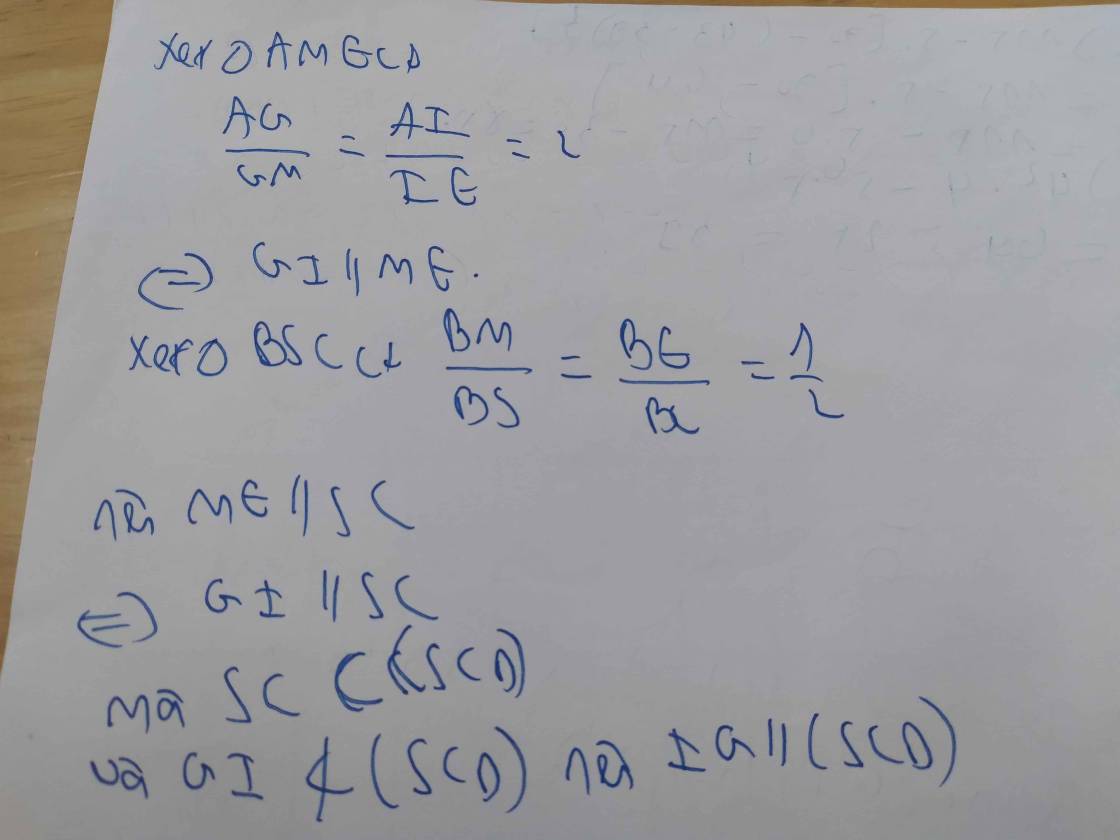 Xét △ AME có
AG/GM = AI/IE = 2
⇔ GI // ME.
Xét △ BSC có BM/BS = BE/BC = 1/2
nên ME // SC
⇔ GI // SC
mà SC ⊂ (SCD)
và GI ⊄ (SCD) nên IG // (SCD)